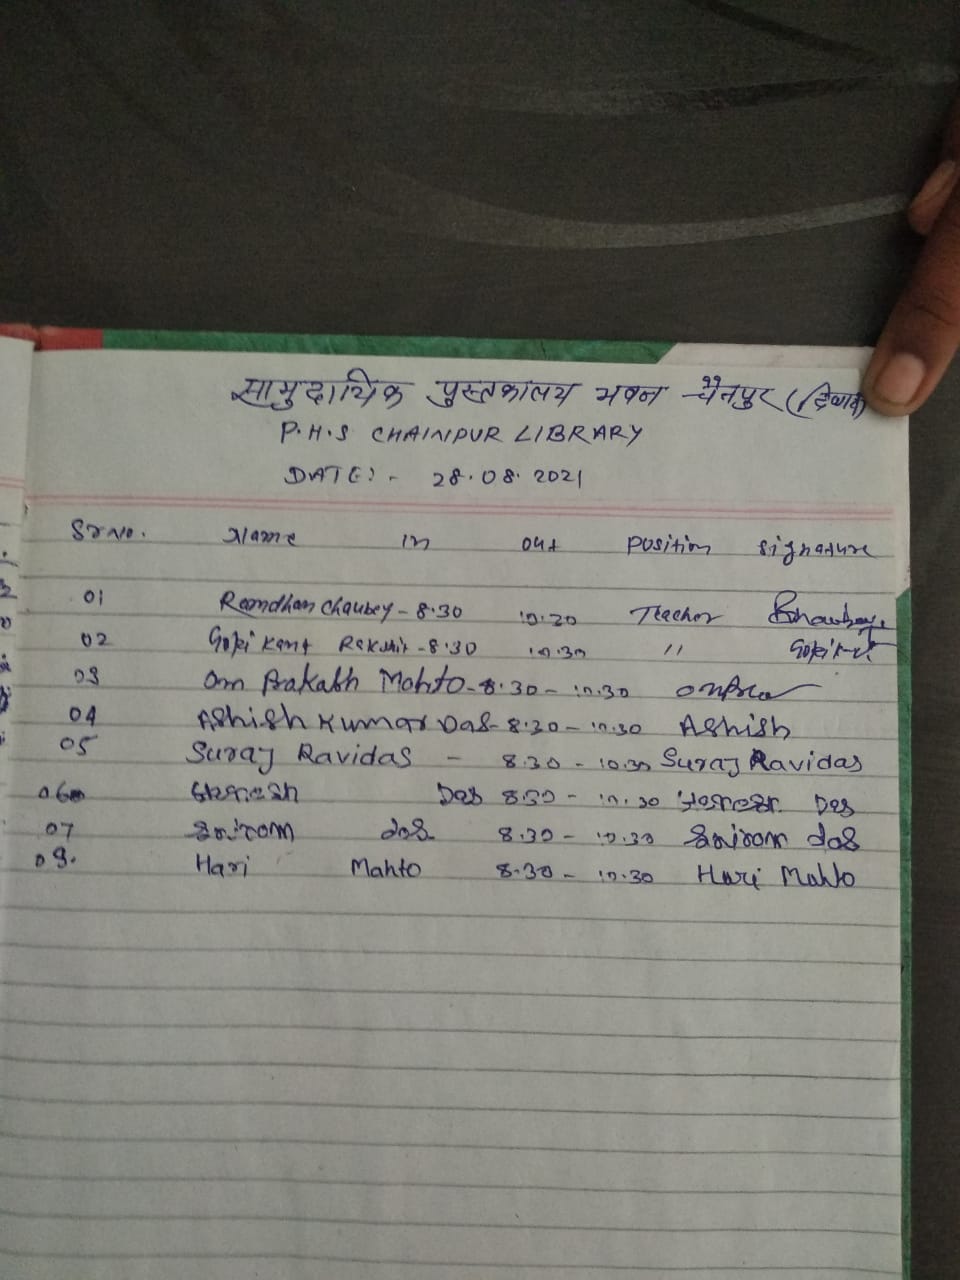 सामुदायिक पुस्तकालय भवन चैनपुर
P.H.S CHAINPUR LIBRARY
DATE:- 28.08.2021
Sr No. Name In Out Position Signature
01 Ramdhan Chaubey - 8.30 10.30 Teacher
02 Gopi Kant Rakshit - 8.30 10.30 " Gopikant
03 Om Prakash Mahto - 8.30 - 10.30
04 Ashish Kumar Das - 8.30 - 10.30 Ashish
05 Suraj Ravidas - 8.30 - 10.30 Suraj Ravidas
06 Das 8.30 - 10.30 Das
07 das 8.30 - 10.30 das
08. Hari Mahto 8.30 - 10.30 Hari Mahto